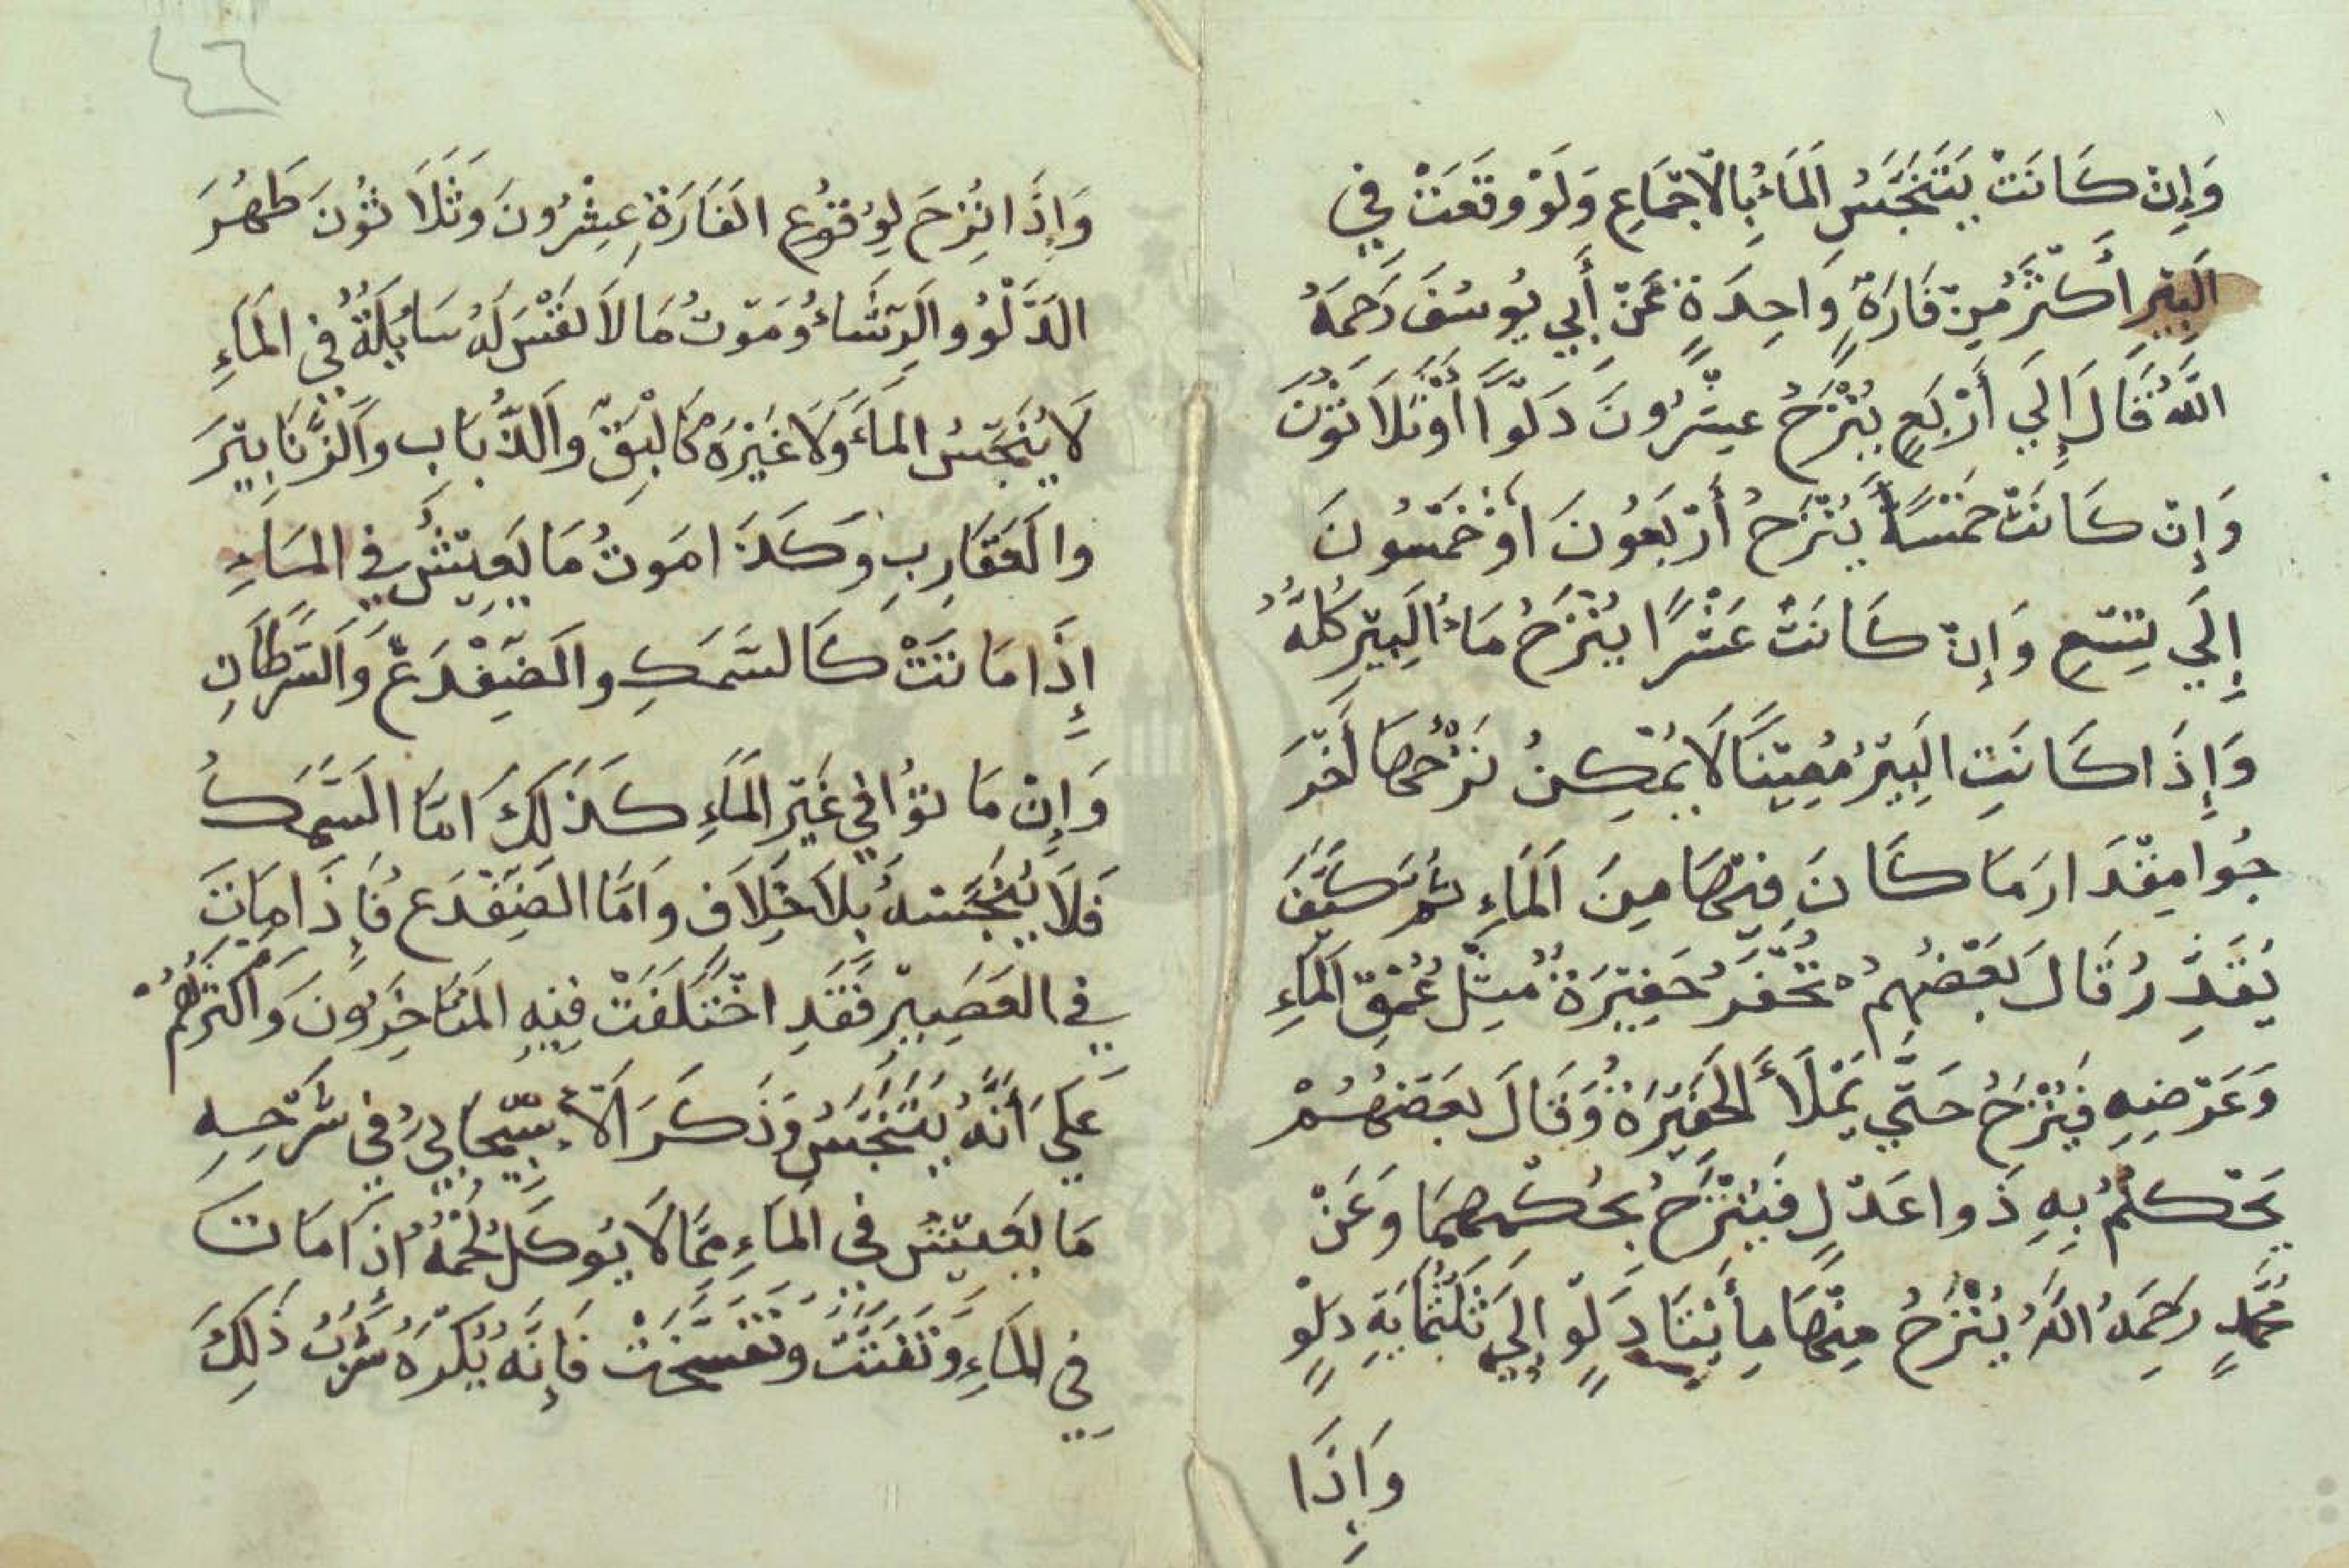 وَإِنْ كَانَتْ يَتَنَجَّسُ المَاءُ بِالاجْمَاعِ وَلَوْ وَقَعَتْ فِي
البِيْرِ أَكْثَرُ مِنْ فَارَةٍ وَاحِدَةٍ عَنْ أَبِي يُوسُفَ رَحِمَهُ
اللَّهُ قَالَ إِلَي أَرْبَعٍ يُنْزَحُ عِشْرُونَ دَلْوًا أَوْ ثَلَاثُوْنَ
وَإِنْ كَانَتْ خَمْسَةً يُنْزَحُ أَرْبَعُونَ أَوْ خَمْسُونَ
إِلَي تِسْعٍ وَإِنْ كَانَتْ عَشْرًا يُنْزَحُ مَاءُ البِيْرِ كُلُّهُ
وَإِذَا كَانَتِ البِيْرُ مُعِيْنًا لَا يُمْكِنُ نَزْحُهَا أَخْرَ
جُوا مِقْدَارَ مَا كَانَ فِيْهَا مِنَ المَاءِ ثُمَّ كَيْفَ
يُقَدِّرُ قَالَ بَعْضُهُمْ تُحْفَرُ حَفِيْرَةٌ مِثْلُ عُمْقِ المَاءِ
وَعَرْضِهِ فَيُنْزَحُ حَتَّي يَمْلَأَ الحَفِيْرَةُ وَقَالَ بَعْضُهُمْ
يَحْكُمُ بِهِ ذَوا عَدْلٍ فَيُنْزَحُ بِحُكْمِهِمَا وَعَنْ
مُحَمَّدٍ رَحِمَهُ اللَّهُ يُنْزَحُ مِنْهَا مِأَيْتَا دَلْوٍ إِلَي ثَلَثْمَايَةِ دَلْوٍ
وَإِذَا
٤٦
وَإِذَا نُزِحَ لِوُقُوْعِ الفَارَةِ عِشْرُونَ وَثَلَاثُونَ طَهُرَ
الدَّلْوُ والرِّشَاءُ وَمَوْتُ مَا لَا نَفْسَ لَهُ سَايِلَةٌ فِي المَاءِ
لَا يُنَجِّسُ المَاءَ وَلَا غَيْرَهُ كَالْبَقِّ وَالذُّبَابِ وَالزَّنَابِيْرَ
والعَقَارِبِ وَكَذَا مَوْتُ مَا يَعِيْشُ فِي المَاءِ
إِذَا مَاتَتْ كَالسَّمَكِ والضِفْدَعِ وَالسَّرَطَانِ
وَإِنْ مَاتُوْا فِي غَيْرِ المَاءِ كَذَلِكَ امَّا السَّمَكُ
فَلَا يُنَجِّسُهُ بِلَا خِلَافٍ وَامَّا الضِفْدَعِ فَإِذَا مَاتَ
فِي العَصِيْرِ فَقَدِ اخْتَلَفَتْ فِيْهِ المُتَاخِرُونَ وَأَكْثَرُهُمْ
عَلَي أَنَّهُ يَتَنَجَّسُ وَذَكَرَ الأَسْبِيْجَابِيُ فِي شَرْحِهِ
مَا يَعِيْشُ فِي المَاءِ مِمَّا لَا يُوكَلُ لَحْمُهُ إِذَا مَاتَ
فِي المَاءِ وَتَفَتَّتَ وَتَفَسَّخَتْ فَإِنَّهُ يُكْرَهُ شُرْبُ ذَلِكَ